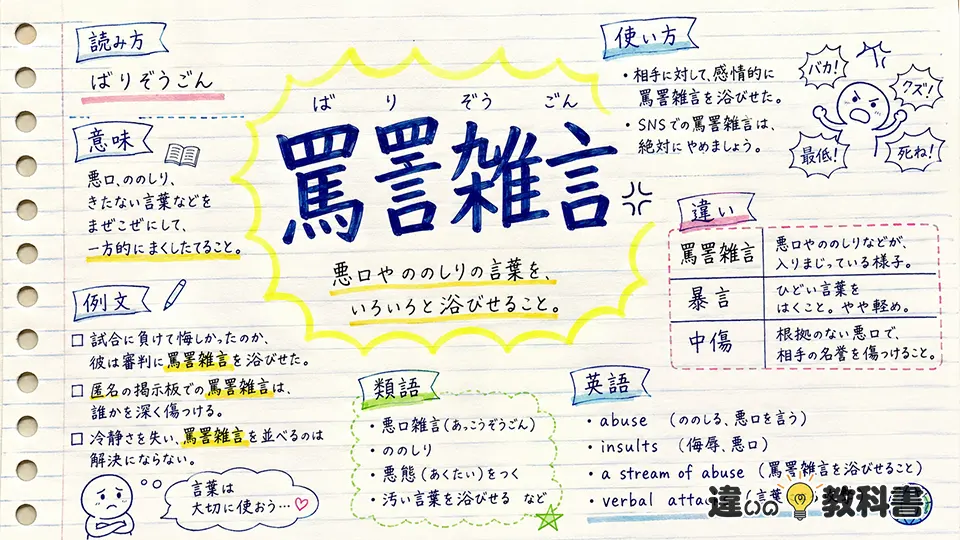 読み方
ばりぞうごん
意味
悪口、ののしり、
きたない言葉などを
まぜこぜにして、
一方的にまくしたてること。
例文
□ 試合に負けて悔しかったのか、
彼は審判に罵詈雑言を浴びせた。
□ 匿名の掲示板での罵詈雑言は、
誰かを深く傷つける。
□ 冷静さを失い、罵詈雑言を並べるのは
解決にならない。
言葉は
大切に使おう…♡
ば り ぞう ごん
罵詈雑言
悪口やののしりの言葉を、
いろいろと浴びせること。
使い方
・相手に対して、感情的に
罵詈雑言を浴びせた。
・SNSでの罵詈雑言は、
絶対にやめましょう。
バカ!
クズ!
最低!
死ね!
違い
罵詈雑言 悪口やののしりなどが、
入りまじっている様子。
暴言 ひどい言葉を
はくこと。やや軽め。
中傷 根拠のない悪口で、
相手の名誉を傷つけること。
類語
・悪口雑言(あっこうぞうごん)
・ののしり
・悪態(あくたい)をつく
・汚い言葉を浴びせる など
英語
・abuse (ののしる、悪口を言う)
・insults (侮辱、悪口)
・a stream of abuse (罵詈雑言を浴びせること)
・verbal (言葉
違いの教科書